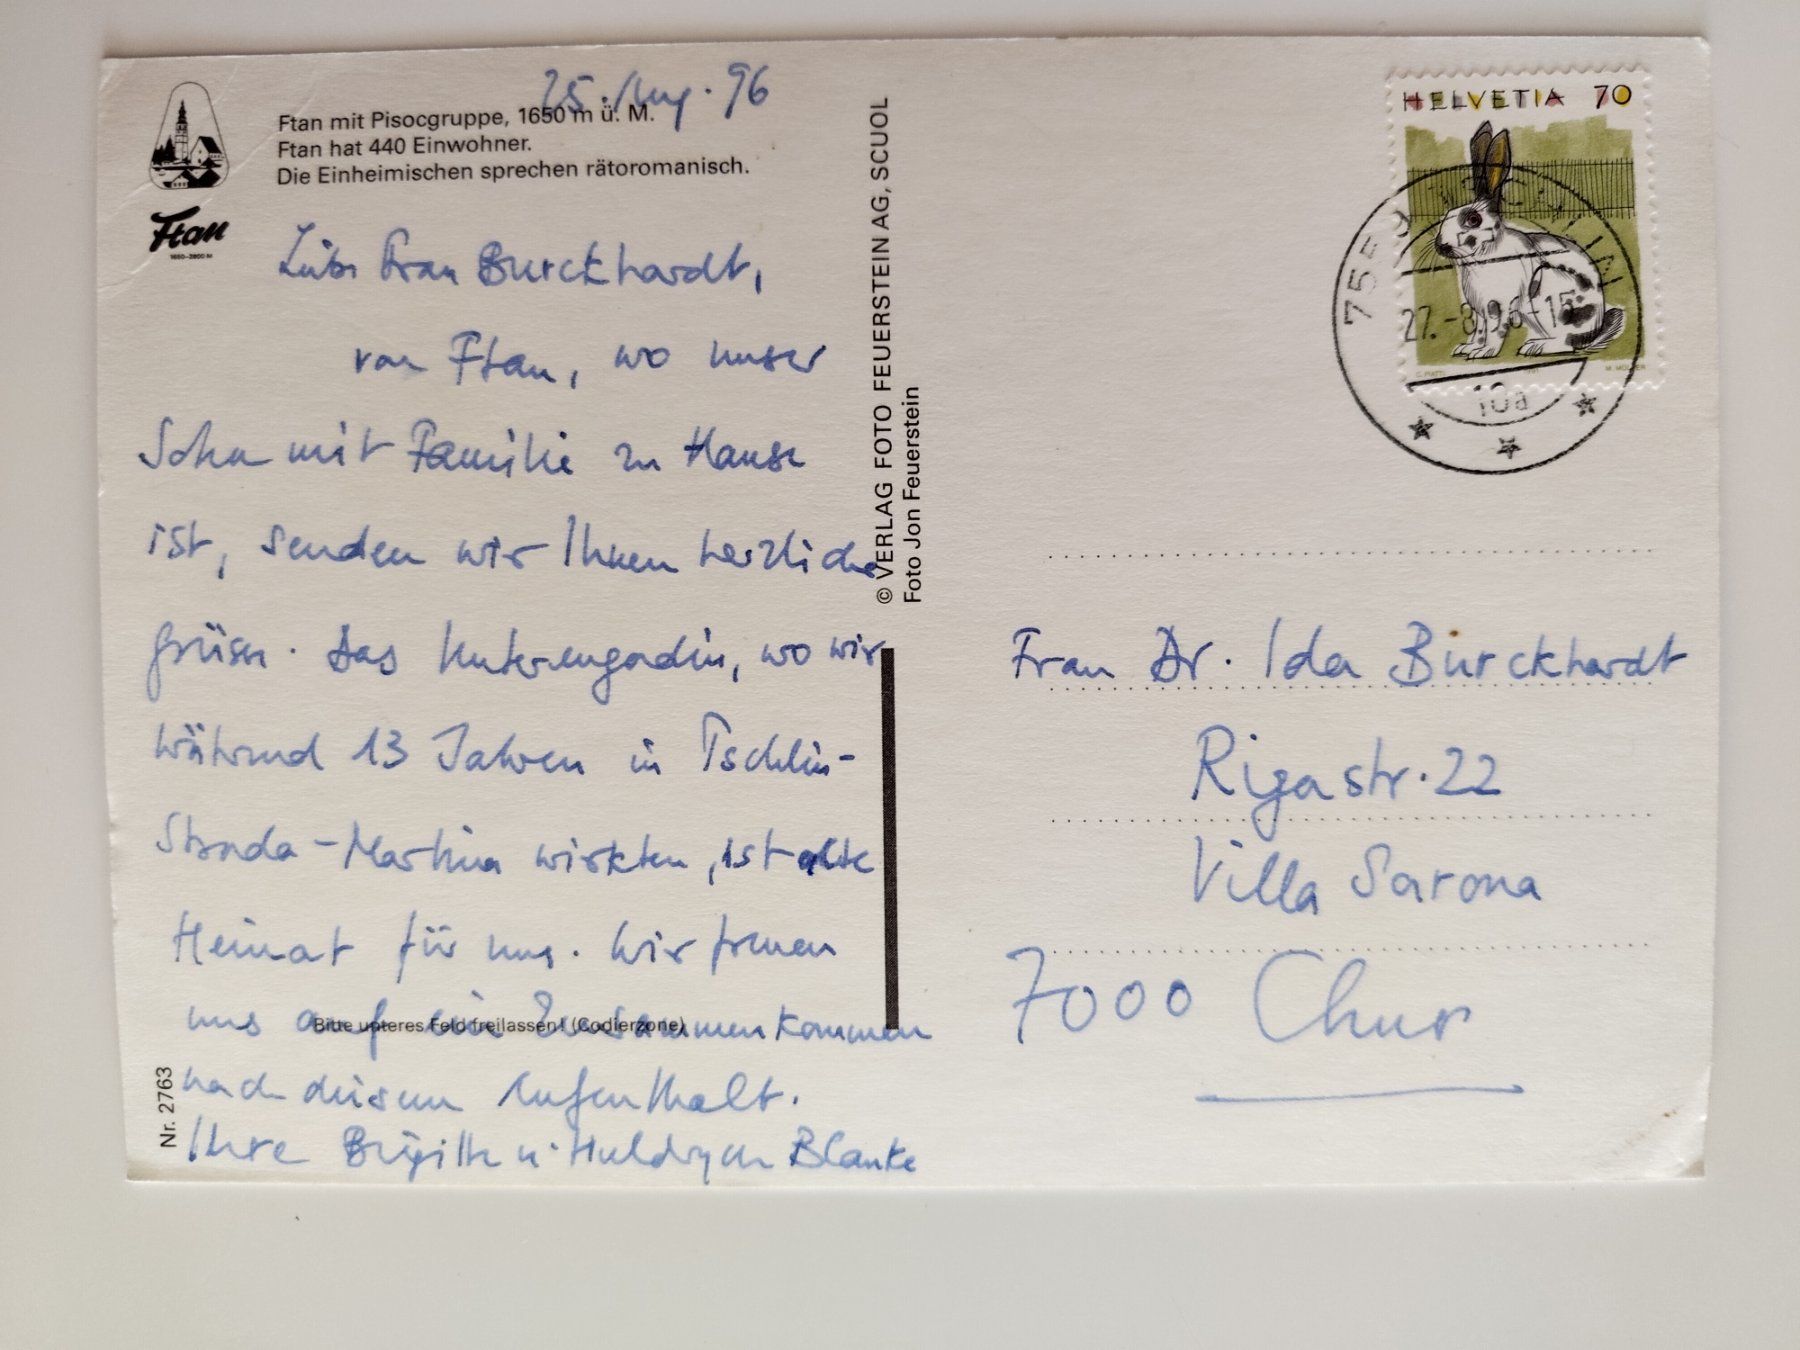 25. Aug. 96
Ftan mit Pisocgruppe, 1650 m ü. M.
Ftan hat 440 Einwohner.
Die Einheimischen sprechen rätoromanisch.
Ftan
1650-2800 M
Liebe Frau Burckhardt,
von Ftan, wo unser
Sohn mit Familie zu Hause
ist, senden wir Ihnen herzliche
Grüsse. Das Unterengadin, wo wir
während 13 Jahren in Tschlin-
Strada-Martina wirkten, ist alte
Heimat für uns. Wir freuen
uns auf ein Zusammenkommen
Bitte unteres Feld freilassen! (Codierzone)
nach diesem Aufenthalt.
Ihre Brigitte u. Huldrych Blanke
Nr. 2763
© VERLAG FOTO FEUERSTEIN AG, SCUOL
Foto Jon Feuerstein
HELVETIA 70
27.-8.96-15
10a
Frau Dr. Ida Burckhardt
Rigastr. 22
Villa Sarona
7000 Chur